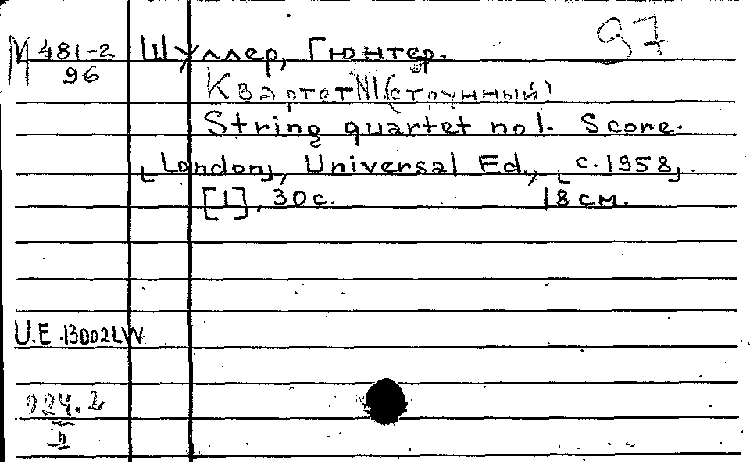 97
М 481-2
96
Шуллер, Гюнтер.
Квартет N1 (струнный)
String quartet no 1. Score.
[London], Universal Ed., [c. 1958].
[1], 30 с. 18 см.
U.E. 13002LW